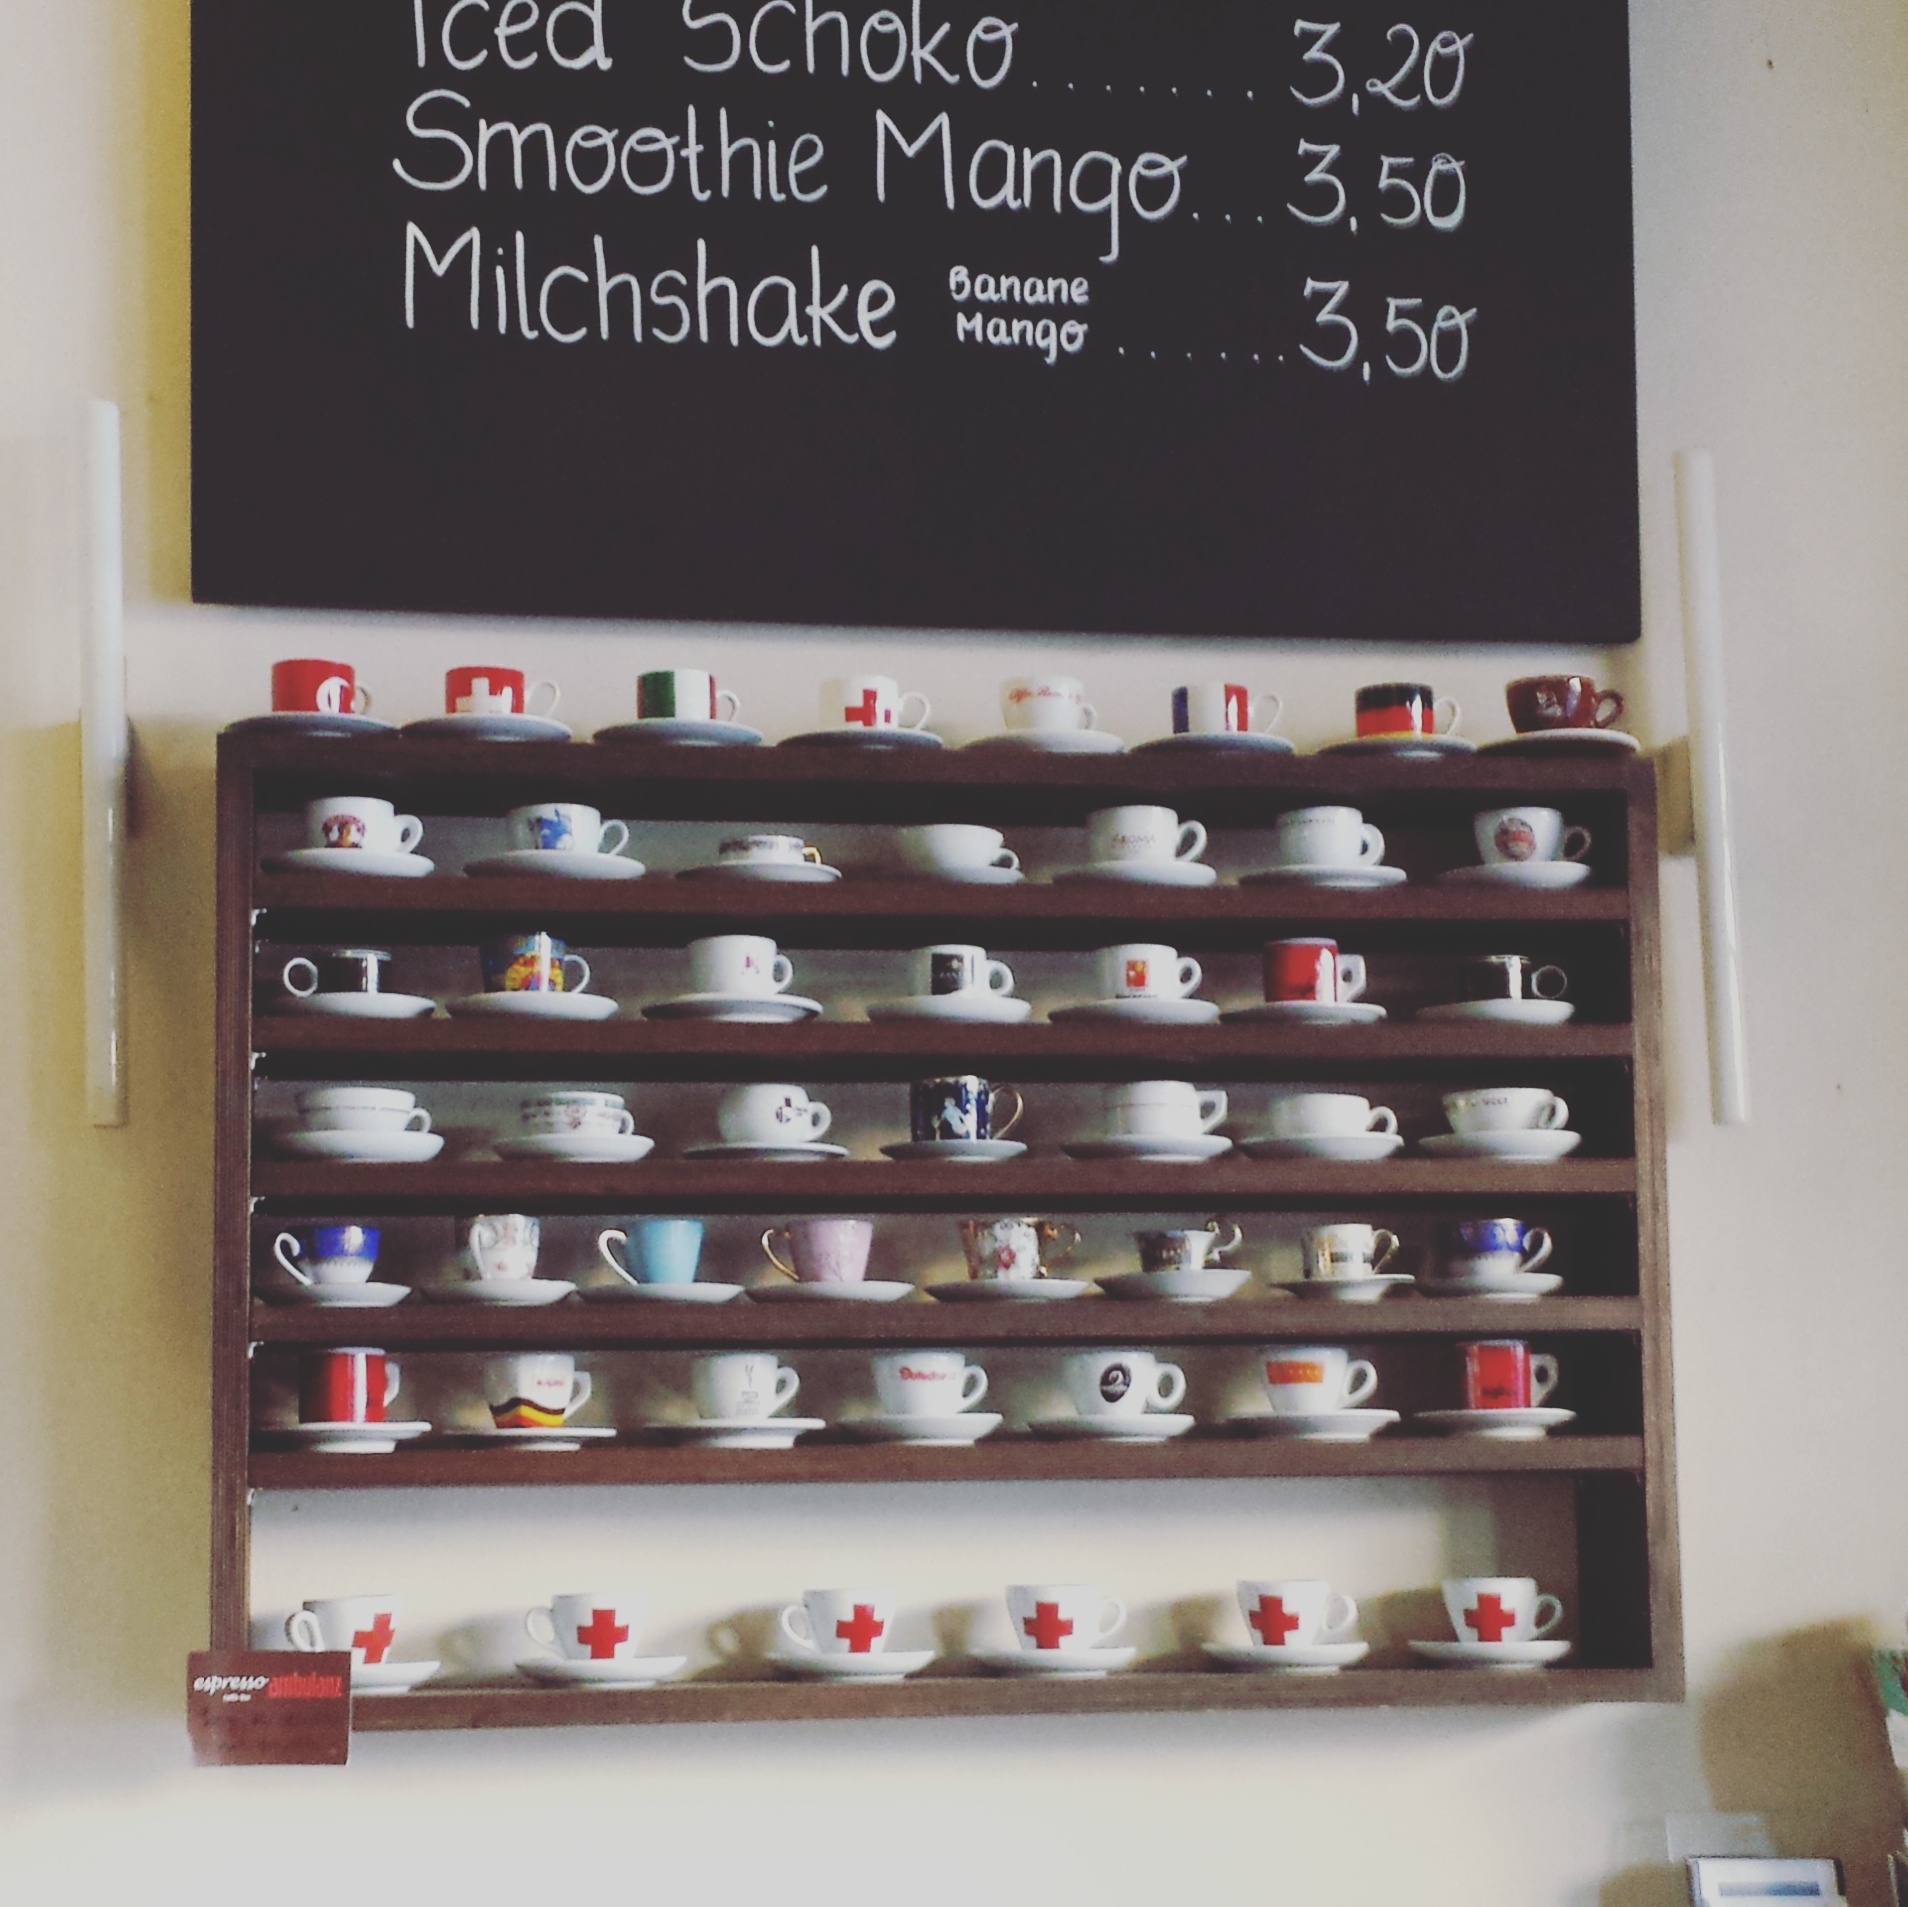 Iced Schoko....... 3,20
Smoothie Mango... 3,50
Milchshake Banane
Mango ...... 3,50
espresso ambulanz